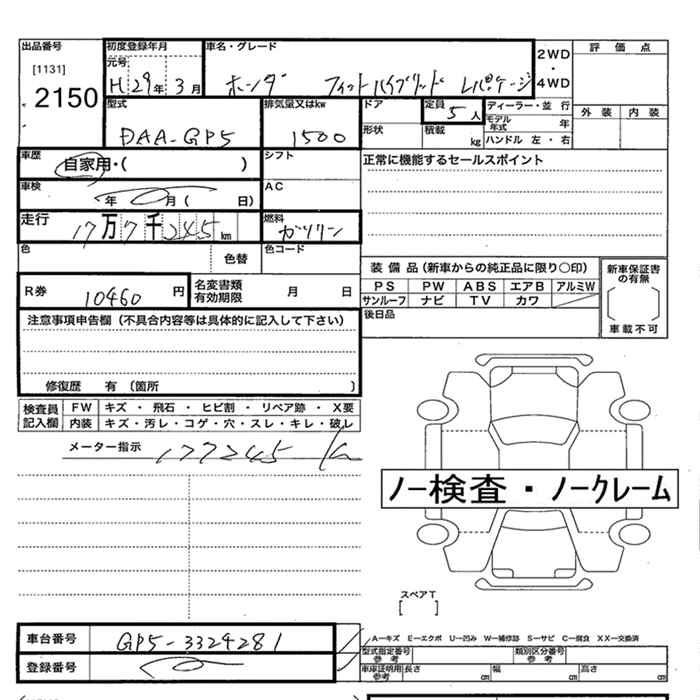 出品番号 初度登録年月 車名・グレード 2WD 評価点
[1131] 元号 ・
2150 H 29年 3月 ホンダ フィットハイブリッド Lパッケージ 4WD
型式 排気量又はkw ドア 定員 5人 ディーラー・並 行 外装 内装
DAA-GP5 1500 形状 積載 kg モデル年式 年
ハンドル 左・右
車歴 自家用・( ) シフト 正常に機能するセールスポイント
車検 年 月( 日) AC
走行 17万7千245km 燃料 ガソリン
色 色替 色コード
装備品(新車からの純正品に限り○印) 新車保証書の有無
R券 10460円 名変書類有効期限 月 日 PS PW ABS エアB アルミW
サンルーフ ナビ TV カワ
注意事項申告欄(不具合内容等は具体的に記入して下さい) 後日品 車載不可
修復歴 有(箇所 )
検査員記入欄 FW キズ・飛石・ヒビ割・リペア跡・X要
内装 キズ・汚レ・コゲ・穴・スレ・キレ・破レ
メーター指示 177245 km
ノー検査・ノークレーム
スペアT
[ ]
車台番号 GP5-3324281 A−キズ E−エクボ U−凹み W−補修跡 S−サビ C−腐食 XX−交換済
型式指定番号 参考 類別区分番号 参考
登録番号 車庫証明用 参考 長さ cm 幅 cm 高さ cm